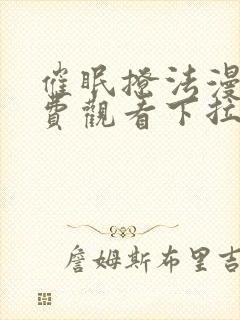 催眠撩法漫
費觀看下拉
詹姆斯布里吉